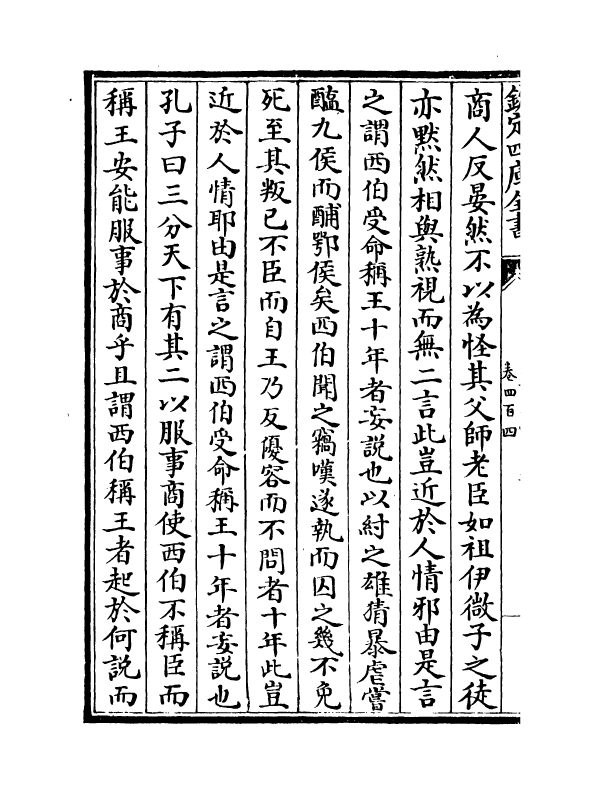 欽定四庫全書
卷四百四
商人反晏然不以為怪其父師老臣如祖伊微子之徒
亦默然相與熟視而無二言此豈近於人情邪由是言
之謂西伯受命稱王十年者妄説也以紂之雄猜暴虐嘗
醢九侯而脯鄂侯矣西伯聞之竊嘆遂執而囚之幾不免
死至其叛已不臣而自王乃反優容而不問者十年此豈
近於人情耶由是言之謂西伯受命稱王十年者妄説也
孔子曰三分天下有其二以服事商使西伯不稱臣而
稱王安能服事於商乎且謂西伯稱王者起於何説而